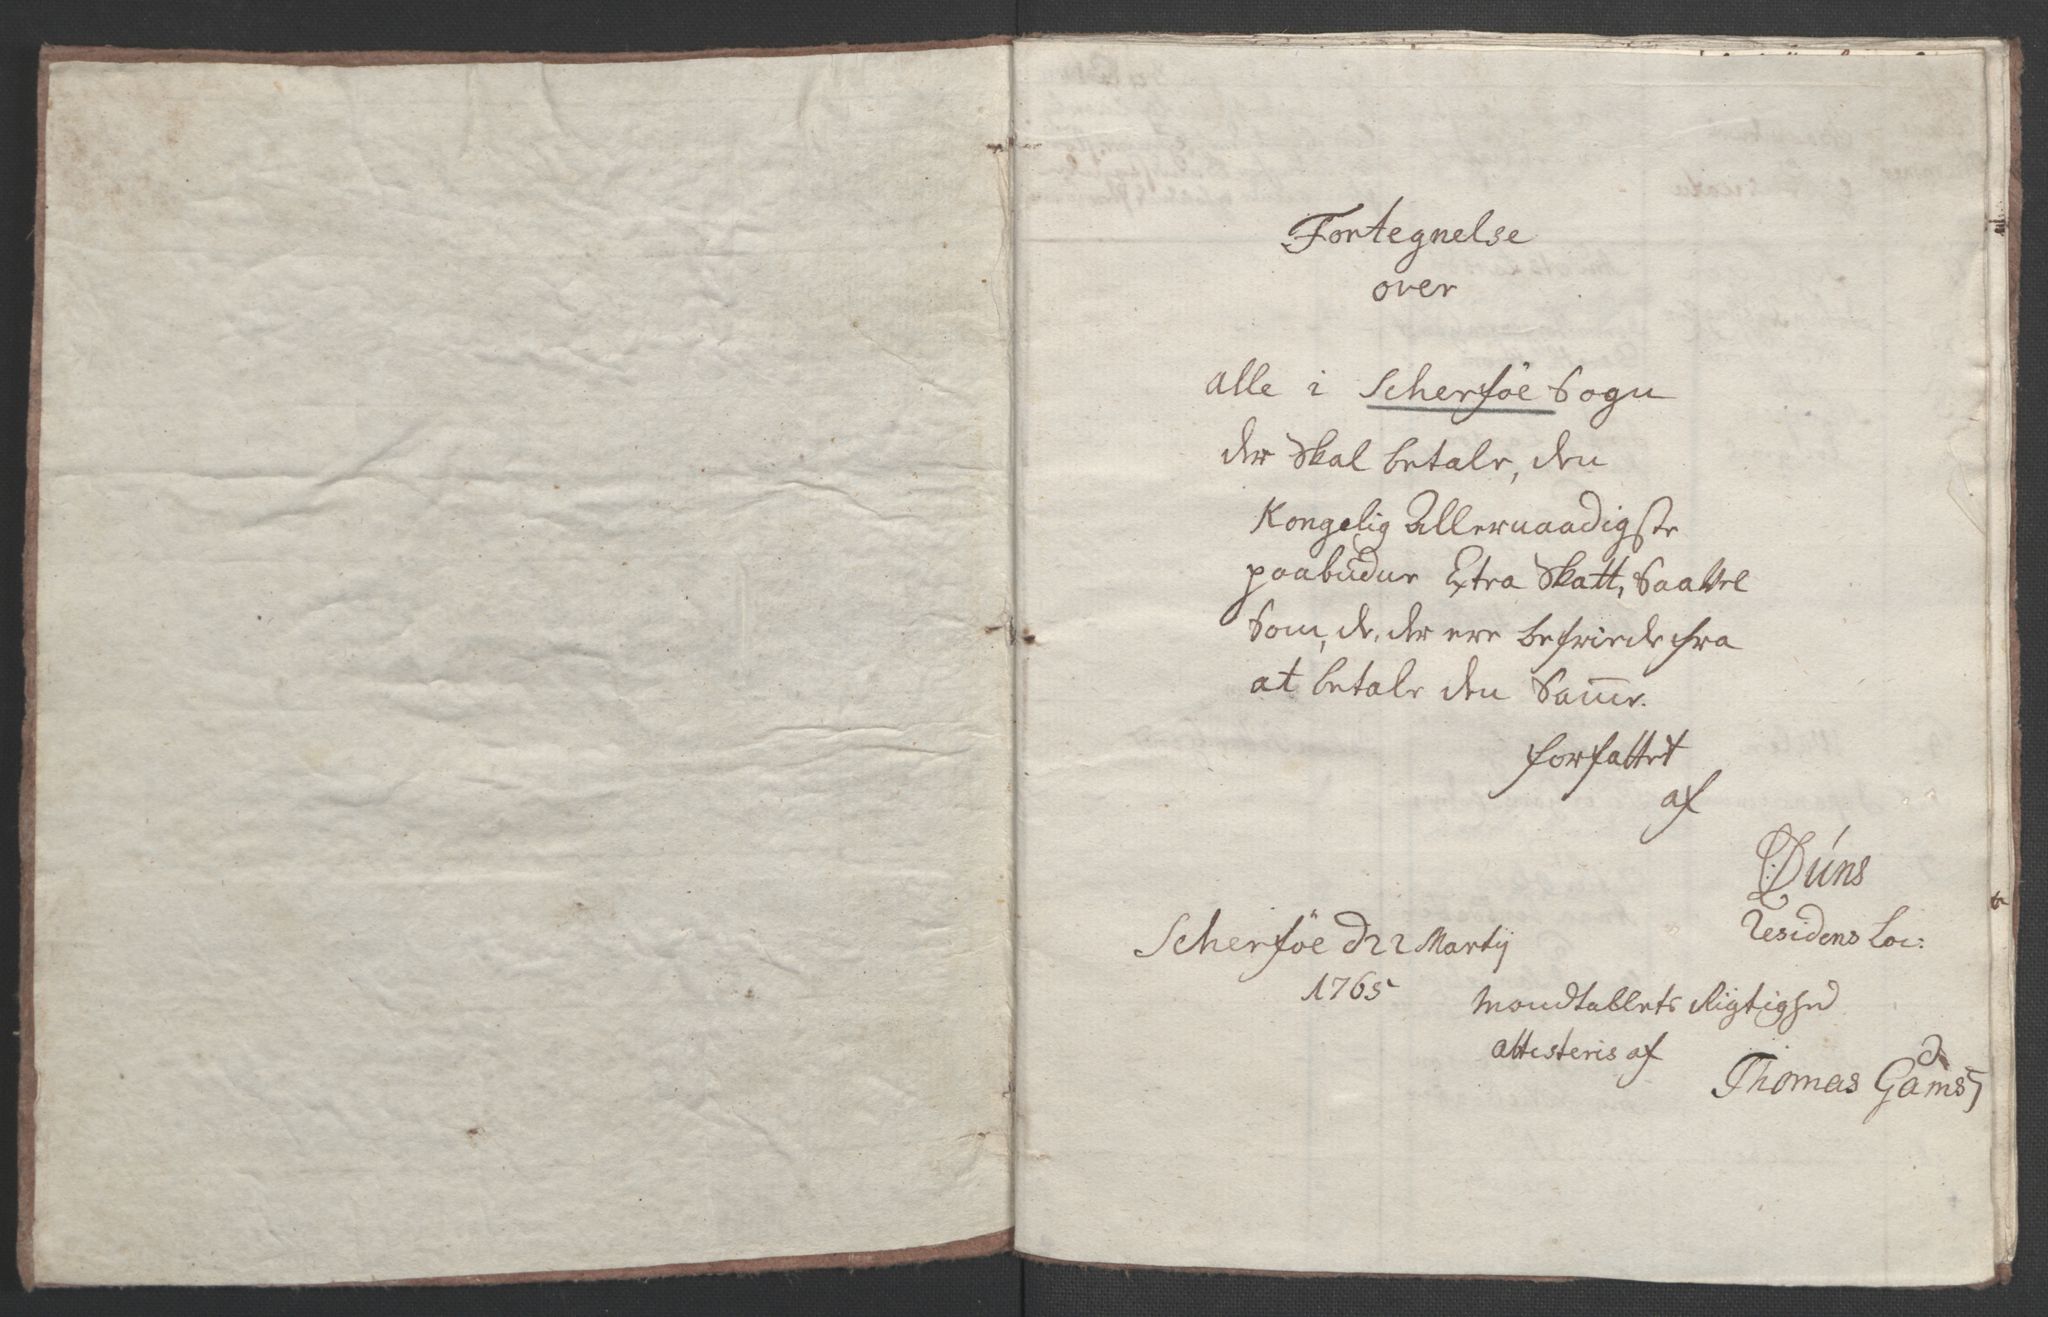 Fortegnelse
over
alle i Scherføe Sogn
der Skal betale, den
Kongelig Allernaadigste
paabudne Extra Skatt, Saavel
Som, de, der ere befriede fra
at betale den Samme.
forfattet
af
Dúns
residens Loci:
Scherføe d 22 Martij
1765
Mandtallets Rigtighed
attesteris af
Thomas